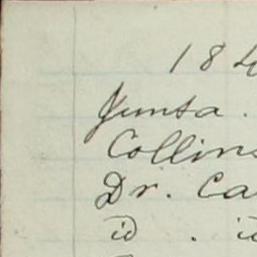 18
Junta.
Collins
Dr. Ca
id . id